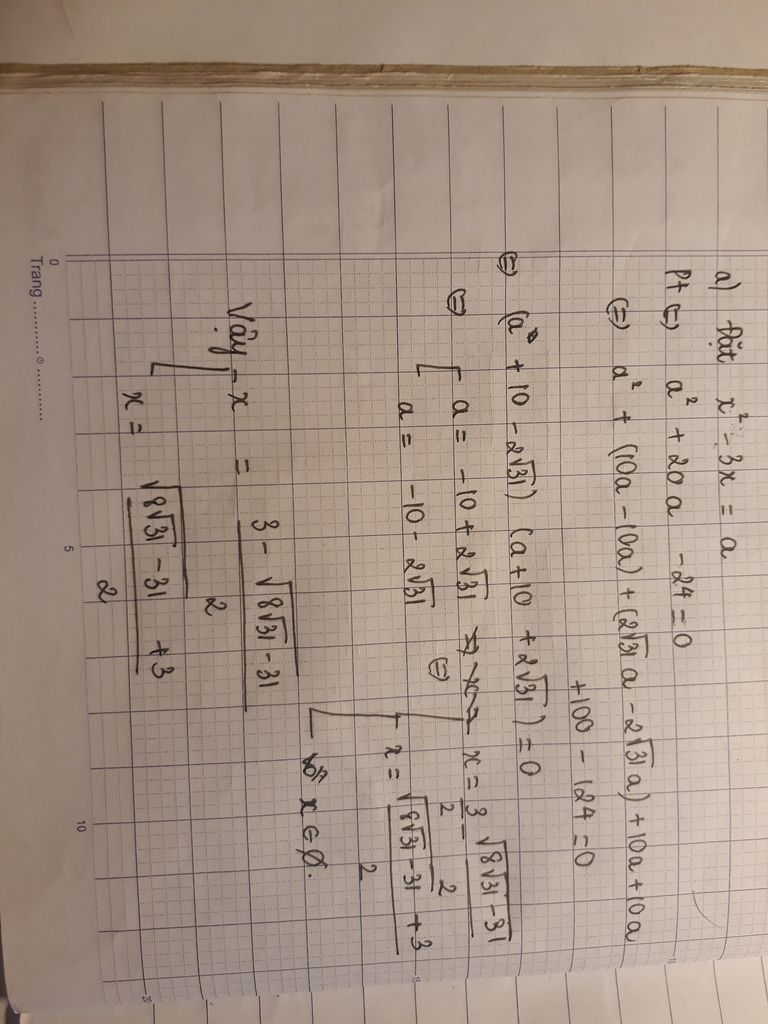 a) Đặt x² - 3x = a
Pt (=) a² + 20a - 24 = 0
(=) a² + (10a - 10a) + (2√31 a - 2√31 a) + 10a + 10a
+ 100 - 124 = 0
(=) (a + 10 - 2√31) (a + 10 + 2√31) = 0
(=) [ a = -10 + 2√31 (=) [ x = 3/2 - √(8√31 - 31)/2
a = -10 - 2√31 x = (√(8√31 - 31) + 3)/2
x ∈ ∅.
Vậy [ x = (3 - √(8√31 - 31))/2
x = (√(8√31 - 31) + 3)/2
0 5 10
Trang